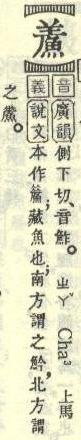 鮺
音廣韻側下切、音鮓。 ㄓㄚˇ Cha³ 上馬
義說文本作䰼；藏魚也；南方謂之魿，北方謂
之鮺。